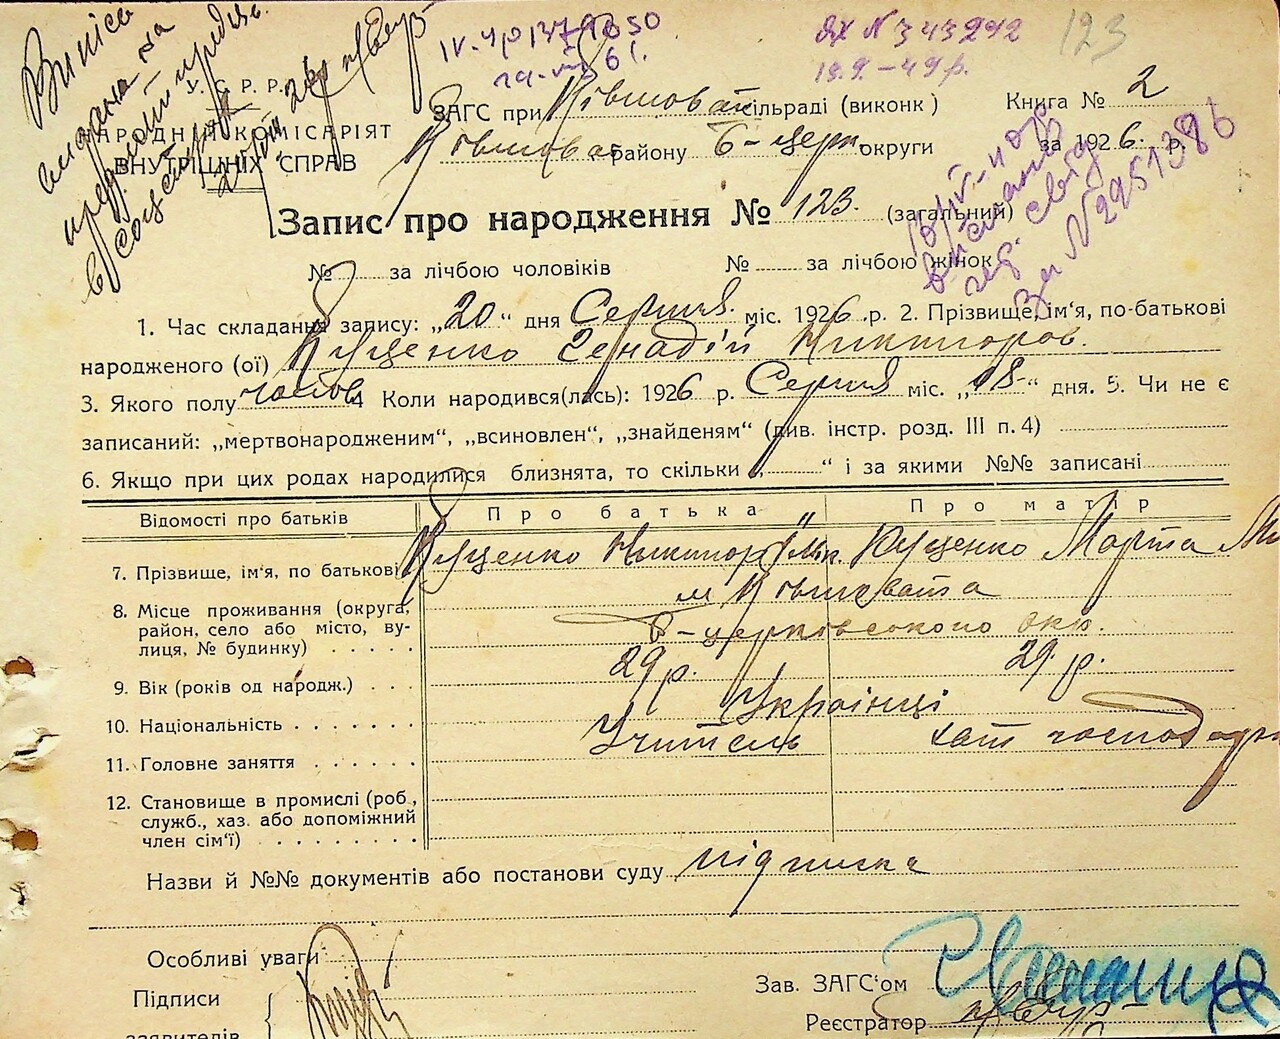 123
IV-ЧР 1379650
ВХ N 343242
19.9.-49 р.
Виписа
видана на
в соцстрах
У. С. Р. Р.
НАРОДНІЙ КОМІСАРІЯТ
ВНУТРІШНІХ СПРАВ
ЗАГС при Ківшоват сільраді (виконк)
Книга № 2
Ківшоват району Б-церк. округи
за 1926 р.
Запис про народження № 123. (загальний)
№ за лічбою чоловіків № за лічбою жінок
N 2951386
1. Час складання запису: „20“ дня Серпня міс. 1926 р. 2. Прізвище, ім'я, по-батькові
народженого (ої) Куценко Генадій Никипоров.
3. Якого полу чолов 4 Коли народився(лась): 1926 р. Серпня міс. „18“ дня. 5. Чи не є
записаний: „мертвонародженим“, „всиновлен“, „знайденям“ (див. інстр. розд. III п. 4)
6. Якщо при цих родах народилися близнята, то скільки „ “ і за якими №№ записані
Відомості про батьків Про батька Про матір
7. Прізвище, ім'я, по батькові Куценко Никипор Куценко Марта
8. Місце проживання (округа, м Ківшовата
район, село або місто, ву- Б-церківського окр.
лиця, № будинку)
9. Вік (років од народж.) 29 р. 29 р.
10. Національність Українці
11. Головне заняття Учитель хат господар
12. Становище в промислі (роб.,
служб., хаз. або допоміжний
член сім'ї)
Назви й №№ документів або постанови суду підписка
Особливі уваги
Підписи
заявителів
Зав. ЗАГС'ом
Реєстратор